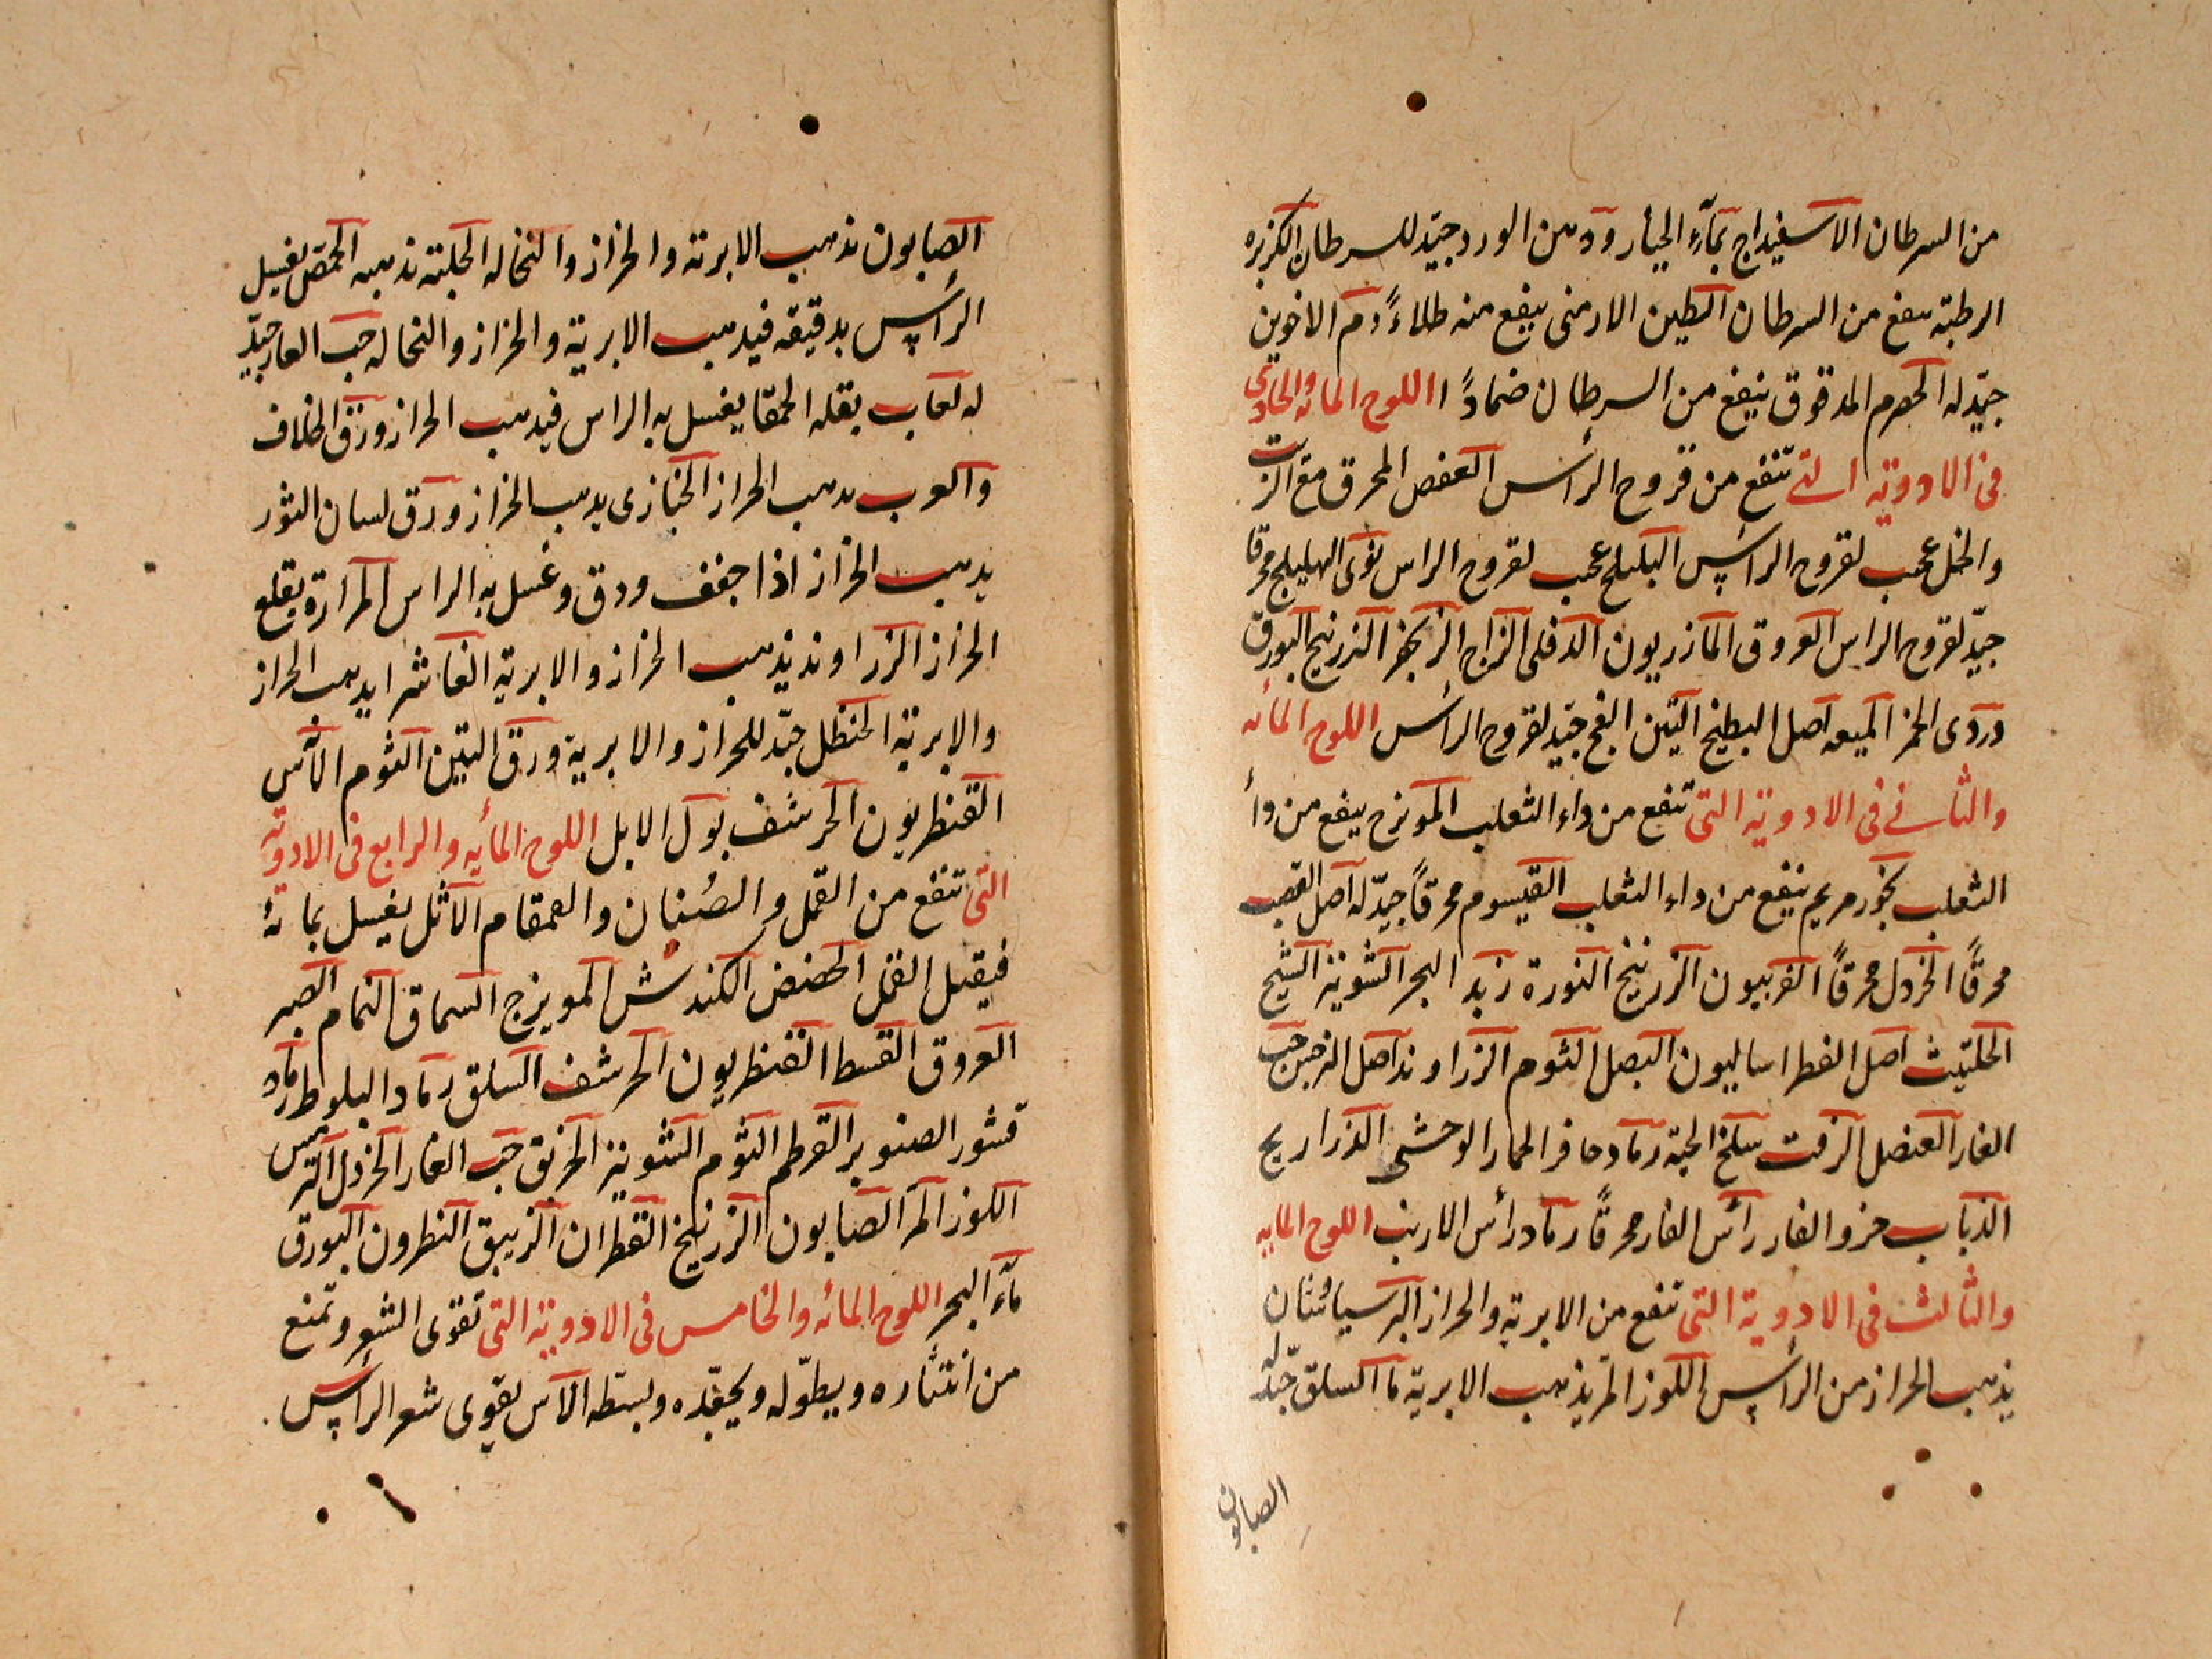 من السرطان الاسفيداج بمآء الخيار ودهن الورد جيّد للسرطان الكزبره
الرطبة ينفع من السرطان الطين الارمنى ينفع منه طلاءً دم الاخوين
جيّد له الحصرم المدقوق ينفع من السرطان ضماداً اللوح المائه والحادى
فى الادوية التى تنفع من قروح الرأس العفص المحرق مع الزيت
والخل عجيب لقروح الراس البليلج عجيب لقروح الراس نوى الهليلج محرقا
جيّد لقروح الراس العروق المازريون الدفلى الزاج الزنجفر الزرنيخ البورق
دردى الخمر الميعه اصل البطيخ التين الفج جيّد لقروح الرأس اللوح المائه
والثانى فى الادوية التى تنفع من داء الثعلب المويزج ينفع من دأ
الثعلب بخور مريم ينفع من داء الثعلب القيسوم محرقاً جيّد له اصل القصب
محرقاً الخردل محرقاً الفربيون الزرنيخ النورة زبد البحر الشونيز الشيح
الحلتيث اصل الفطراساليون البصل الثوم الزراوند اصل النرجس حب
الغار العنصل الزفت سلخ الحية رماد حافر الحمار الوحشى الذراريح
الذباب خرو الفار رأس الفار محرقاً رماد رأس الارنب اللوح المايه
والثالث فى الادوية التى تنفع من الابرية والحزاز البرسياوشان
يذهب الحزاز من الرأس اللوز المر يذهب الابرية ما السلق جيّد له
الصابون
الصابون يذهب الابرية والحزاز والنخاله الحلبة يذهبه الحمّص يغسل
الرأس بدقيقه فيذهب الابرية والحزاز والنخاله حب الغار جيّد
له لعاب بقله الحمقا يغسل به الراس فيذهب الحزاز ورق الخلاف
والغرب يذهب الحزاز الخبازى يذهب الحزاز ورق لسان الثور
يذهب الحزاز اذا جفف ودق وغسل به الراس المرارة يقلع
الحزاز الزراوند يذهب الحزاز والابرية الفاشرا يذهب الحزاز
والابرية الحنظل جيّد للحزاز والابرية ورق التين الثوم الآس
القنطريون الحرشف بول الابل اللوح المأيه والرابع فى الادوية
التى تنفع من القمل والصُئبان والقمقام الاثل يغسل بمائه
فيقتل القمل الحضض الكندش المويزج السماق النمام الصبر
العروق القسط القنطريون الحرشف السلق رماد البلوط رماد
قشور الصنوبر القرطم الثوم الشونيز الخربق حب الغار الخردل الترمس
اللوز المر الصابون الزرنيخ القطران الزيبق النطرون البورق
مآء البحر اللوح المائه والخامس فى الادوية التى تقوى الشعر وتمنع
من انتثاره ويطوّله ويجعّده وبسّطه الآس يقوى شعر الرأس